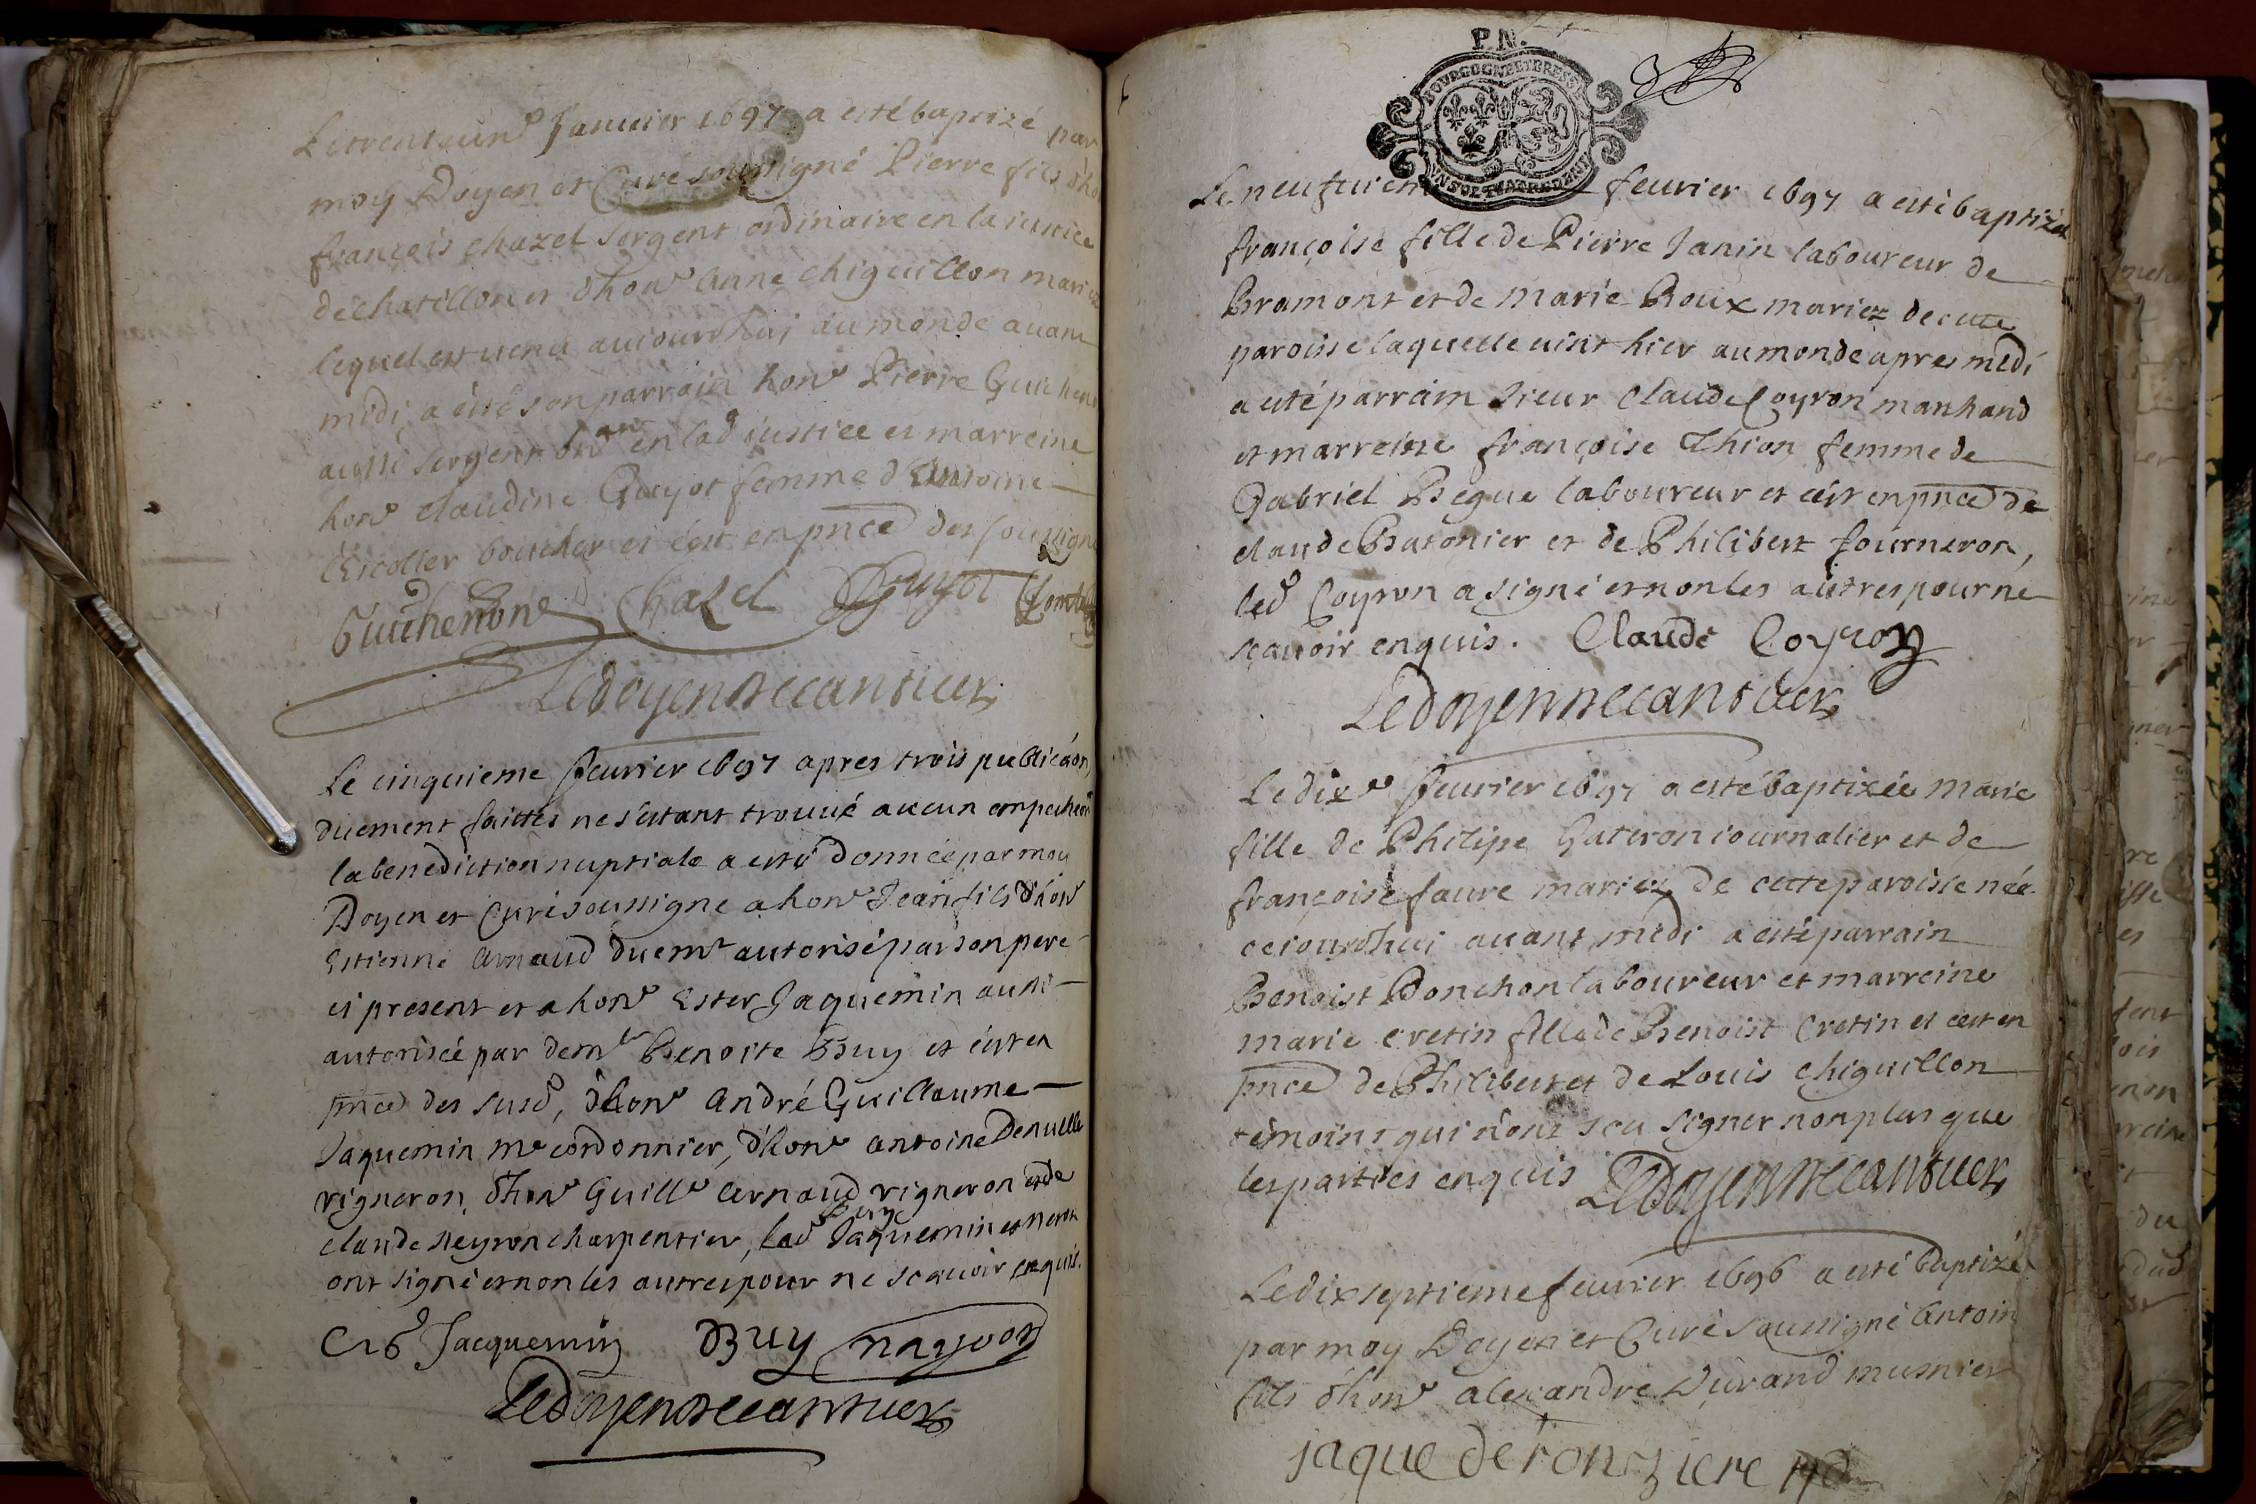 Le trente unе Januier 1697 a esté baptizé par
moy Doyen et Curé soussigné Pierre fils d'ho
françois chazel sergent ordinaire en la iustice
de chatillon et d'hon^e Anne chiguillon mariez
lequel est uenu auiourdhuj au monde auant
midi, a été son parrain hon^e Pierre Guichen
aussi sergent ord^re en lad iustice et marreine
hon^e claudine Guyot femme d'Antoine
Escoller boucher et c'est en pnce des soussigne
Guichenon Chazel Guyot
Ledoyen
Le cinquieme feurier 1697 apres trois publicaon,
duement faittes ne s'estant trouué aucun empechem
la benediction nuptiale a esté donnée par moy
Doyen et Curé soussigne a hon^e Jean fils d'hon^e
Estienne Arnaud duem^t autorisé par son pere
ci present et a hon^e Ester Jaquemin aussi
autorisée par dem^lle Benoite Buy et c'est en
pnce des susd, d'hon^e André Guillaume
Jaquemin m^e cordonnier, d'hon^e antoine Denuelle
vigneron, d'hon^e Guill^e Arnaud vigneron et de
claude neyron charpentier, led Buy Jaquemin et neron
ont signé et non les autres pour ne scauoir enquis.
Jacquemin Buy nayron
Ledoyen
P.N.
BOURGOGNE ET BRESSE
Le neufuiem feurier 1697 a esté baptizée
françoise fille de Pierre Janin laboureur de
Bramont et de Marie Roux mariez de cette
paroisse laquelle uint hier au monde apres midi
a été parrain sieur Claude Coyron marchand
et marreine françoise Thion femme de
Gabriel Begue laboureur et c'est en pnce de
claude Batonier et de Philibert fourneron,
led Coyron a signé et non les autres pour ne
sçauoir enquis. Claude Coyron
Ledoyen
Le dix^e feurier 1697 a esté baptizée Marie
fille de Philipe Gateron iournalier et de
françoise faure mariez de cette paroisse née
ceiourdhui auant midi a esté parrain
Benoist Ponchon laboureur et marreine
marie cretin fille de Benoist Cretin et c'est en
pnce de Philibert et de Louis chiguillon
témoins qui n'ont sceu signer non plus que
les parties enquis Ledoyen
Le dix septieme feurier 1696 a esté baptizé
par moy Doyen et Curé soussigné Antoin
fils d'hon^e alexandre Durand musnier
jaque de ronziere